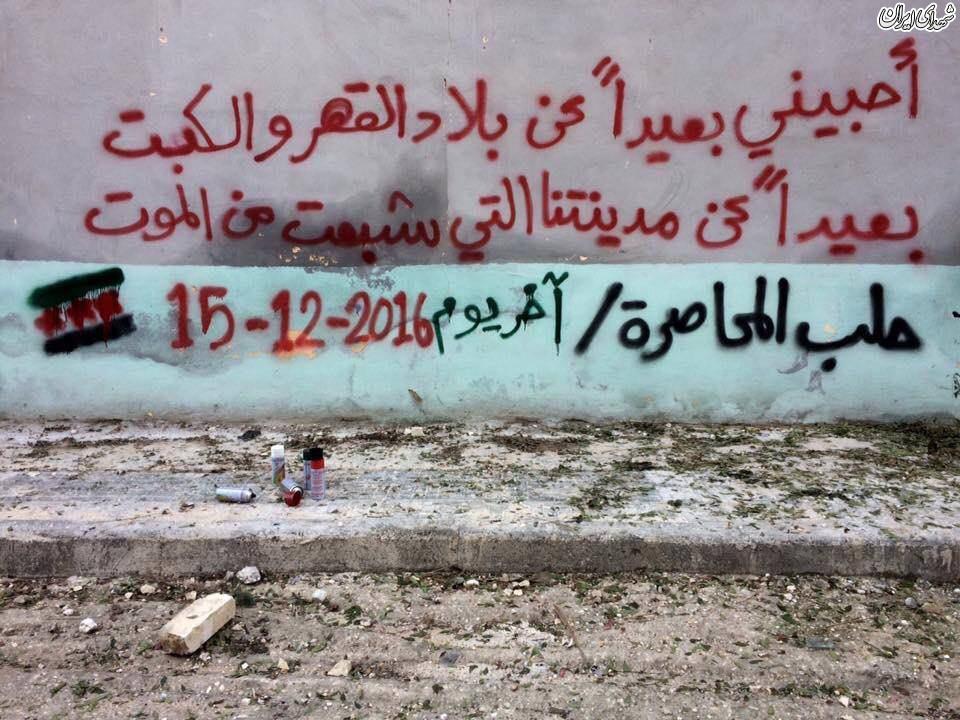 شهدای ایران
أحبيني بعيداً عن بلاد القهر والكبت
بعيداً عن مدينتنا التي شبعت من الموت
حلب المحاصرة / آخر يوم 15-12-2016